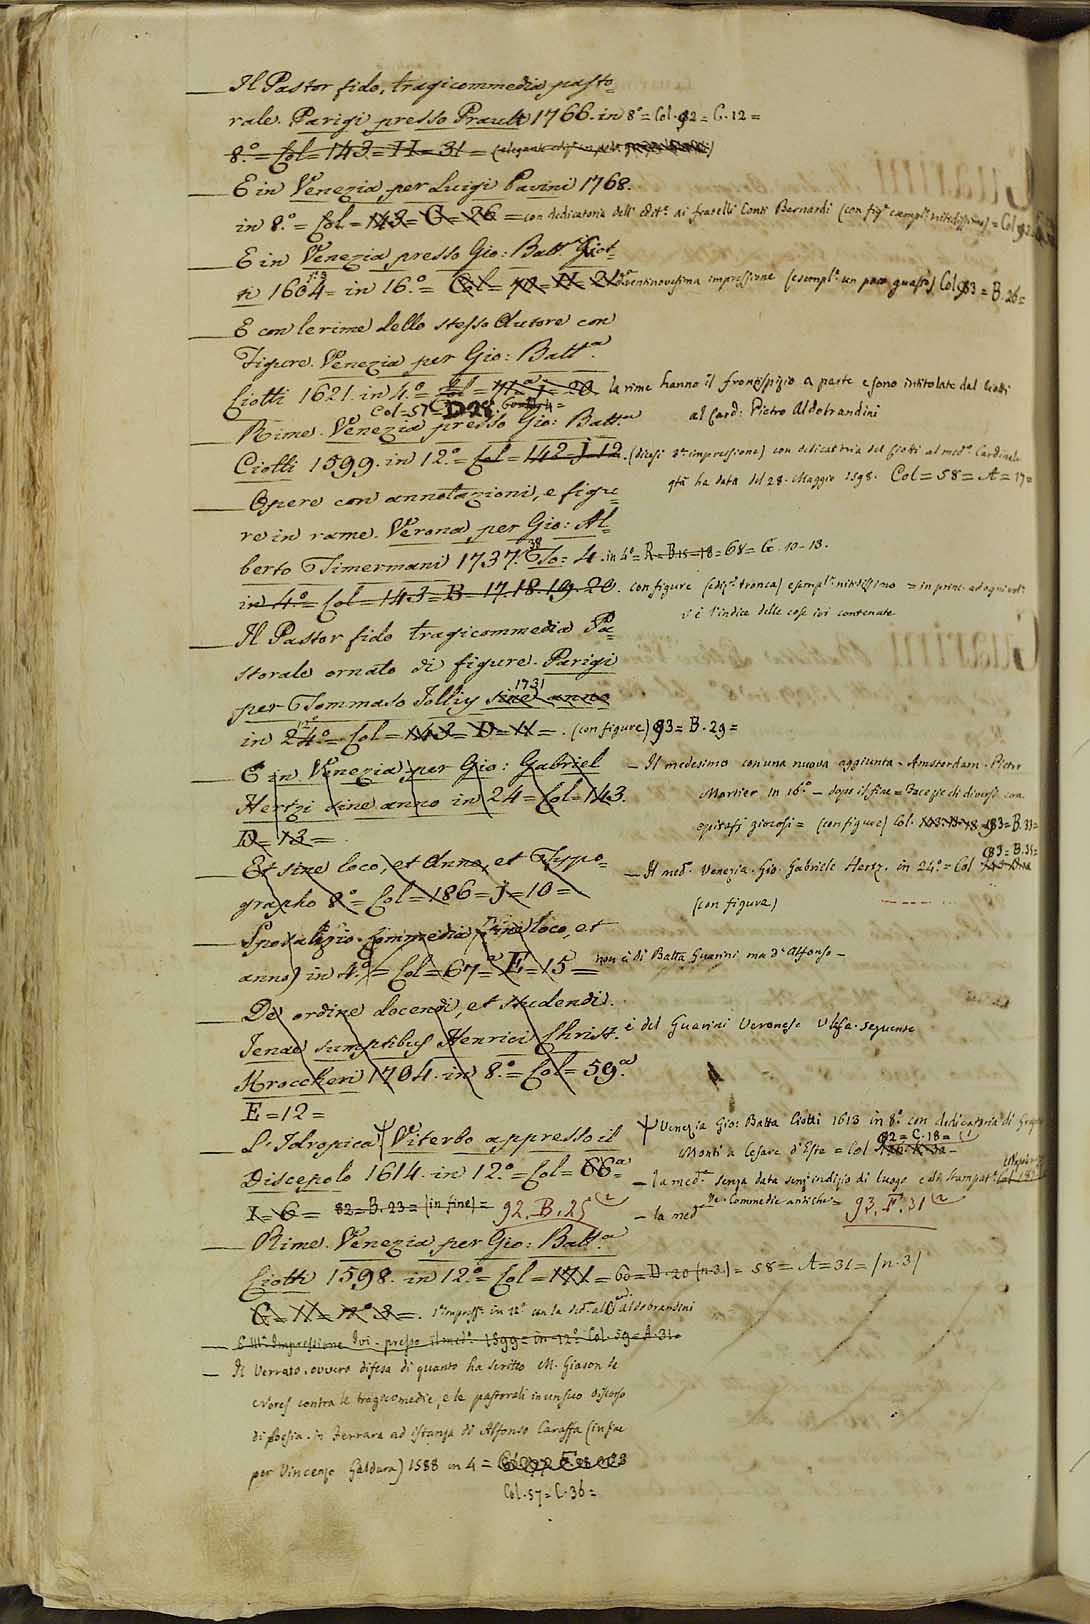 Il Pastor fido, tragicommedia pasto=
rale. Parigi presso Prault 1766. in 8° = Col. 92 = C. 12 =
8.° = Col = 143 = H = 31 =
E in Venezia, per Luigi Pavini 1768.
in 8.° = Col = 143 = G = 26 = con dedicatoria dell' Edit.e ai fratelli Conti Bernardi (con fig.e esempl.e nitidissimo) = Col
E in Venezia presso Gio: Batt.a Ciot=
ti 1604 = in 16.° = ventinovesima impressione (esempl.e un poco guasto) Col 93 = B. 26 =
E con le rime dello stesso Autore con
Figure. Venezia per Gio: Batt.a
Ciotti 1621. in 4.° = le rime hanno il frontispizio a parte e sono intitolate dal Ciotti
Col = 57
al Card: Pietro Aldobrandini
Rime. Venezia presso Gio: Batt.a
Ciotti 1599. in 12.° = Col = 142 = J = 12. (dicesi 3.a impressione) con dedicatoria del Ciotti al med.o Cardinale
ha data del 28. Maggio 1598. Col = 58 = A = 17 =
Opere con annotazioni, e figu=
re in rame. Verona, per Gio: Al=
38
berto Tumermani 1737. To: 4. in 4° = R = B 15 = 18 = 68 = G. 10 = 13.
in 4.° = Col = 143 = B = 17. 18. 19. 20. con figure (ediz.e tronca) esempl.e nitidissimo = in princ. ad ogni vol.
v'è l'indice delle cose ivi contenute
Il Pastor fido tragicommedia Pa=
storale ornato di figure. Parigi
1731
per Tommaso Jolly sine anno
12°
in 24.° = Col = 143 = D = 11 = . (con figure) 93 = B. 29 =
E in Venezia, per Gio: Gabriel
— Il medesimo con una nuova aggiunta. Amsterdam. Pietro
Hertzi sine anno in 24 = Col = 143.
Mortier in 16.° — dopo il fine = Facezie di diversi con
D = 13 =
epitafi giocosi = (con figure) Col. 93 = B. 33 =
Et sine loco, et Anno, et Typo=
93 = B. 31 =
— Il med.o Venezia. Gio. Gabriele Hertz. in 24.° = Col
grapho 8.° = Col = 186 = J = 10 =
(con figure)
Sposalizio. Commedia (sine loco, et
anno) in 4.° = Col = 67.a = E = 15 = non è di Batta Guarini ma d'Alfonso —
De ordine docendi, et studendi.
Jenae sumptibus Henrici Christ. è del Guarini Veronese
Kroc​kheri 1704. in 8.° = Col = 59.a
E = 12 =
L'Idropica Viterbo appresso il
Venezia Gio: Batta Ciotti 1613 in 8.° con dedicatoria di
Discepolo 1614. in 12.° = Col = 66.a
92 = C. 18 =
Monti a Cesare d'Este = Col
— la med.a senza data senz'indizio di luogo e di stampat.
I = 6 = 82 = B. 23 = (in fine) = 92. B. 25 (2
— la med.a Ve. Commedie antiche = 93. F. 31 (2
Rime. Venezia per Gio: Batt.a
Ciotti 1598. in 12.° = Col = 171 = 60 = D. 20 (n. 3.) = 58 = A = 31 = (n. 3)
G = 11 = n.° 3 = . 1.a impress.e in 12° con la ded.a al Card. Aldobrandini
E III.a Impressione Ivi. presso il med.o 1599 = in 12.° Col. 59 = A. 31 =
Il Verrato, ovvero difesa di quanto ha scritto M. Giason de
Nores contra le tragicomedie, e le pastorali in un suo discorso
di poesia. in Ferrara ad istanza di Alfonso Caraffa (in fine
per Vincenzo Galdura) 1588 in 4 =
Col. 57 = C. 36 =